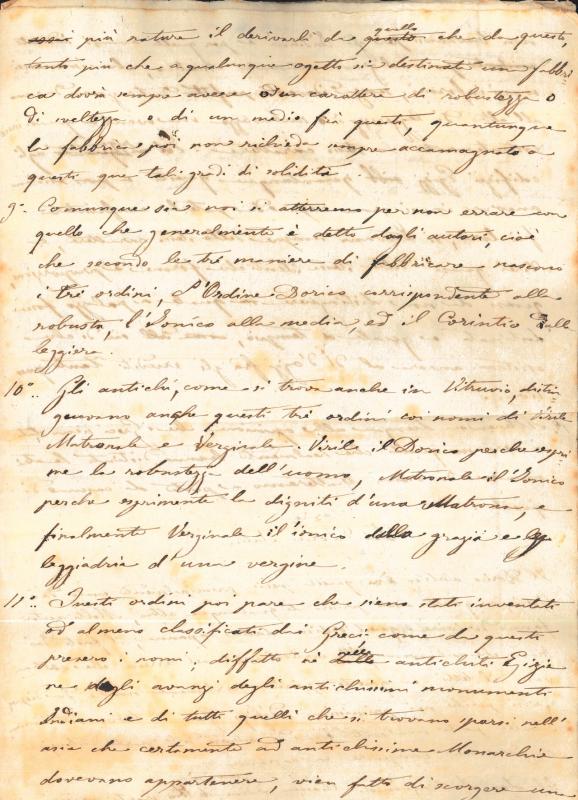 più nature il derivarli da quello che da questi,
tanto più che a qualunque ogetto sia destinata un fabbri=
ca dovrà sempre avere o un carattere di robustezza o
di sveltezza o di un medio fra questi, quantunque
la fabbrica poi non richieda sempre accompagnato a
questi que tali gradi di solidità.
9°. Comunque sia noi si atterremo per non errare con
quello che generalmente è detto dagli autori, cioè
che secondo le tre maniere di fabbricare nascono
i tre ordini, l'Ordine Dorico corrispondente alla
robusta, l'Ionico alla media, ed il Corintio alla
leggiera.
10°. Gli antichi, come si trova anche in Vitruvio, distin
guevano anche questi tre ordini coi nomi di Virile
Matronale e Verginale. Virile il Dorico perche espri
me la robustezza dell'uomo, Matronale il l'Ionico
perche esprimente la dignità d'una Matrona, e
finalmente Verginale il ionico della grazia e
leggiadria d'una vergine.
11°. Questi ordini poi pare che sieno stati inventati
od almeno classificati dai Greci come da questi
presero i nomi; diffatti ne nelle antichità Egizie
ne degli avanzi degli antichissimi monumenti
Indiani e di tutti quelli che si trovano sparsi nell'
asia che certamente ad antichissime Monarchie
dovevano appartenere, vien fatto di scorgere una